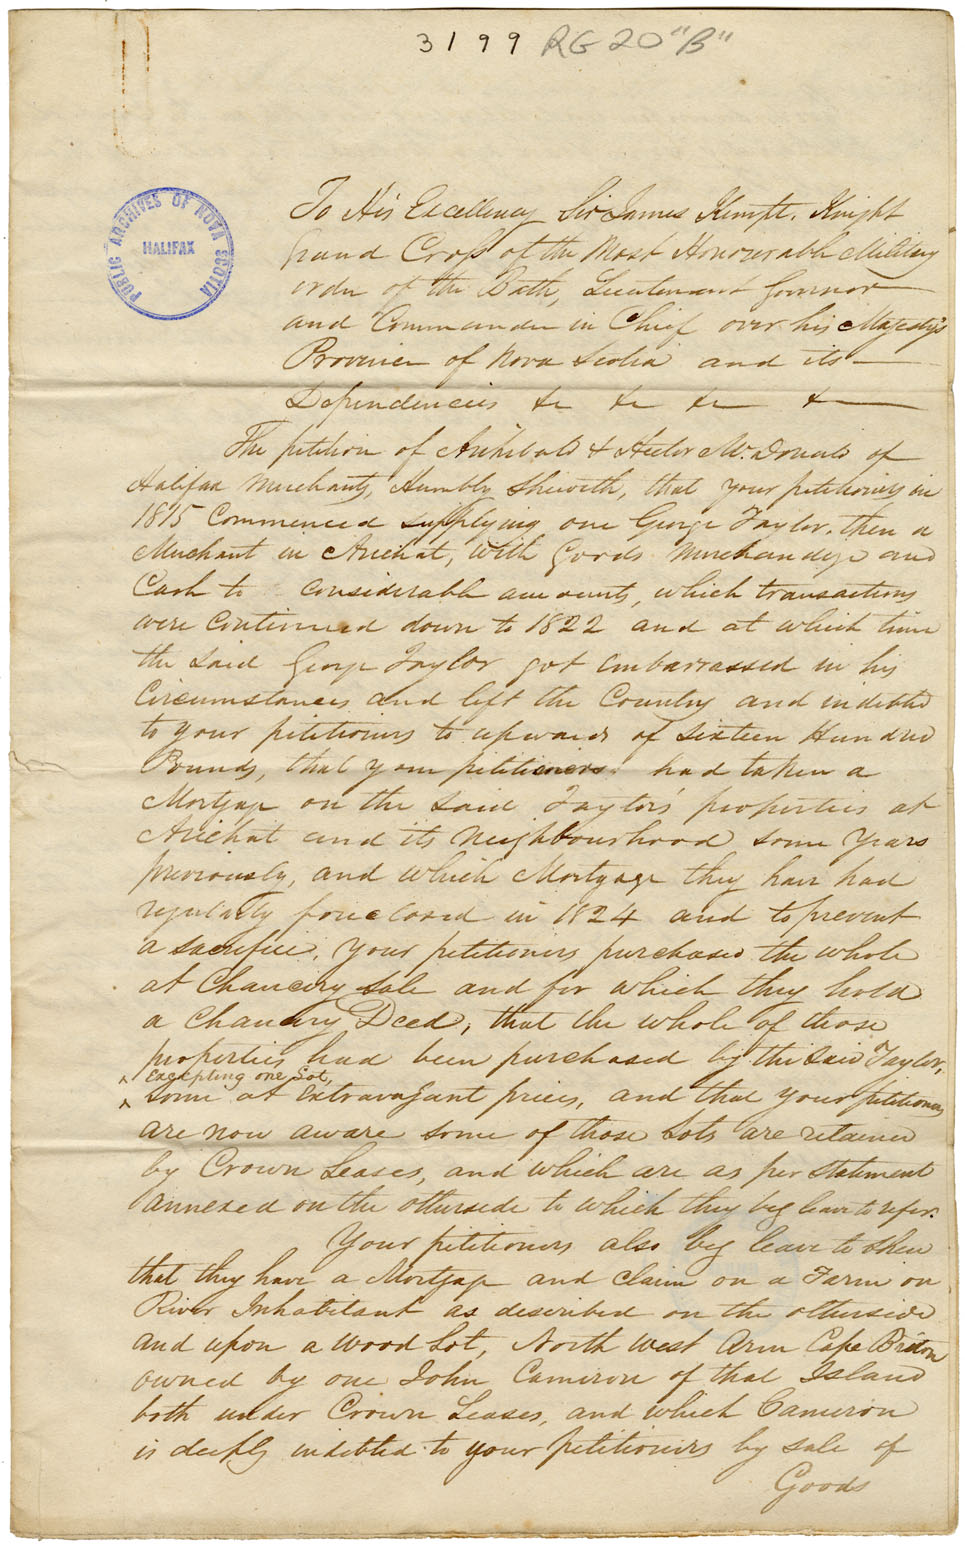 3199 RG 20 "B"
PUBLIC ARCHIVES OF NOVA SCOTIA
HALIFAX
To His Excellency Sir James Kempt. Knight
Grand Cross of the Most Honourable Military
order of the Bath, Lieutenant Governor
and Commander in Chief over his Majesty's
Province of Nova Scotia and its
Dependencies &c &c &c &
The petition of Archibald & Hector McDonald of
Halifax Merchants, Humbly Sheweth, that your petitioners in
1815 Commenced supplying one George Taylor, then a
Merchant in Arichat, With Goods Merchandize and
Cash to considerable amounts, which transactions
were Continued down to 1822 and at which time
the said George Taylor got embarrassed in his
Circumstances and left the Country and indebted
to your petitioners to upwards of Sixteen Hundred
Pounds, that your petitioners had taken a
Mortgage on the said Taylors' properties at
Arichat and its Neighbourhood some years
previously, and which Mortgage they have had
regularly foreclosed in 1824 and to prevent
a sacrifice, your petitioners purchased the whole
at Chancery Sale and for which they hold
a Chancery Deed, that the whole of those
properties had been purchased by the said Taylor,
excepting one Lot,
some at extravagant prices, and that your petitioners
are now aware some of those Lots are retained
by Crown Leases, and which are as per statement
annexed on the otherside to which they beg leave to refer.
Your petitioners also beg leave to shew
that they have a Mortgage and claim on a Farm on
River Inhabitant as described on the otherside
and upon a Wood Lot, North West Arm Cape Breton
owned by one John Cameron of that Island
both under Crown Leases, and which Cameron
is deeply indebted to your petitioners by sale of
Goods